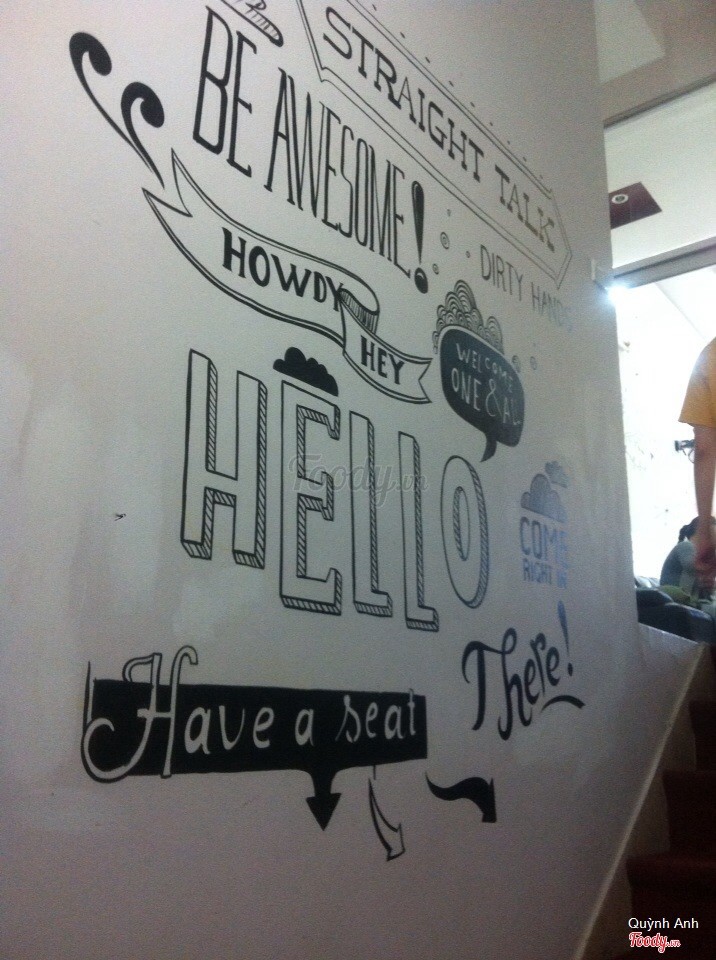 STRAIGHT TALK
BE AWESOME!
DIRTY HANDS
HOWDY
HEY
WELCOME
ONE & ALL
HELLO
Foody.vn
COME
RIGHT IN
There!
Have a seat
Quỳnh Anh
Foody.vn